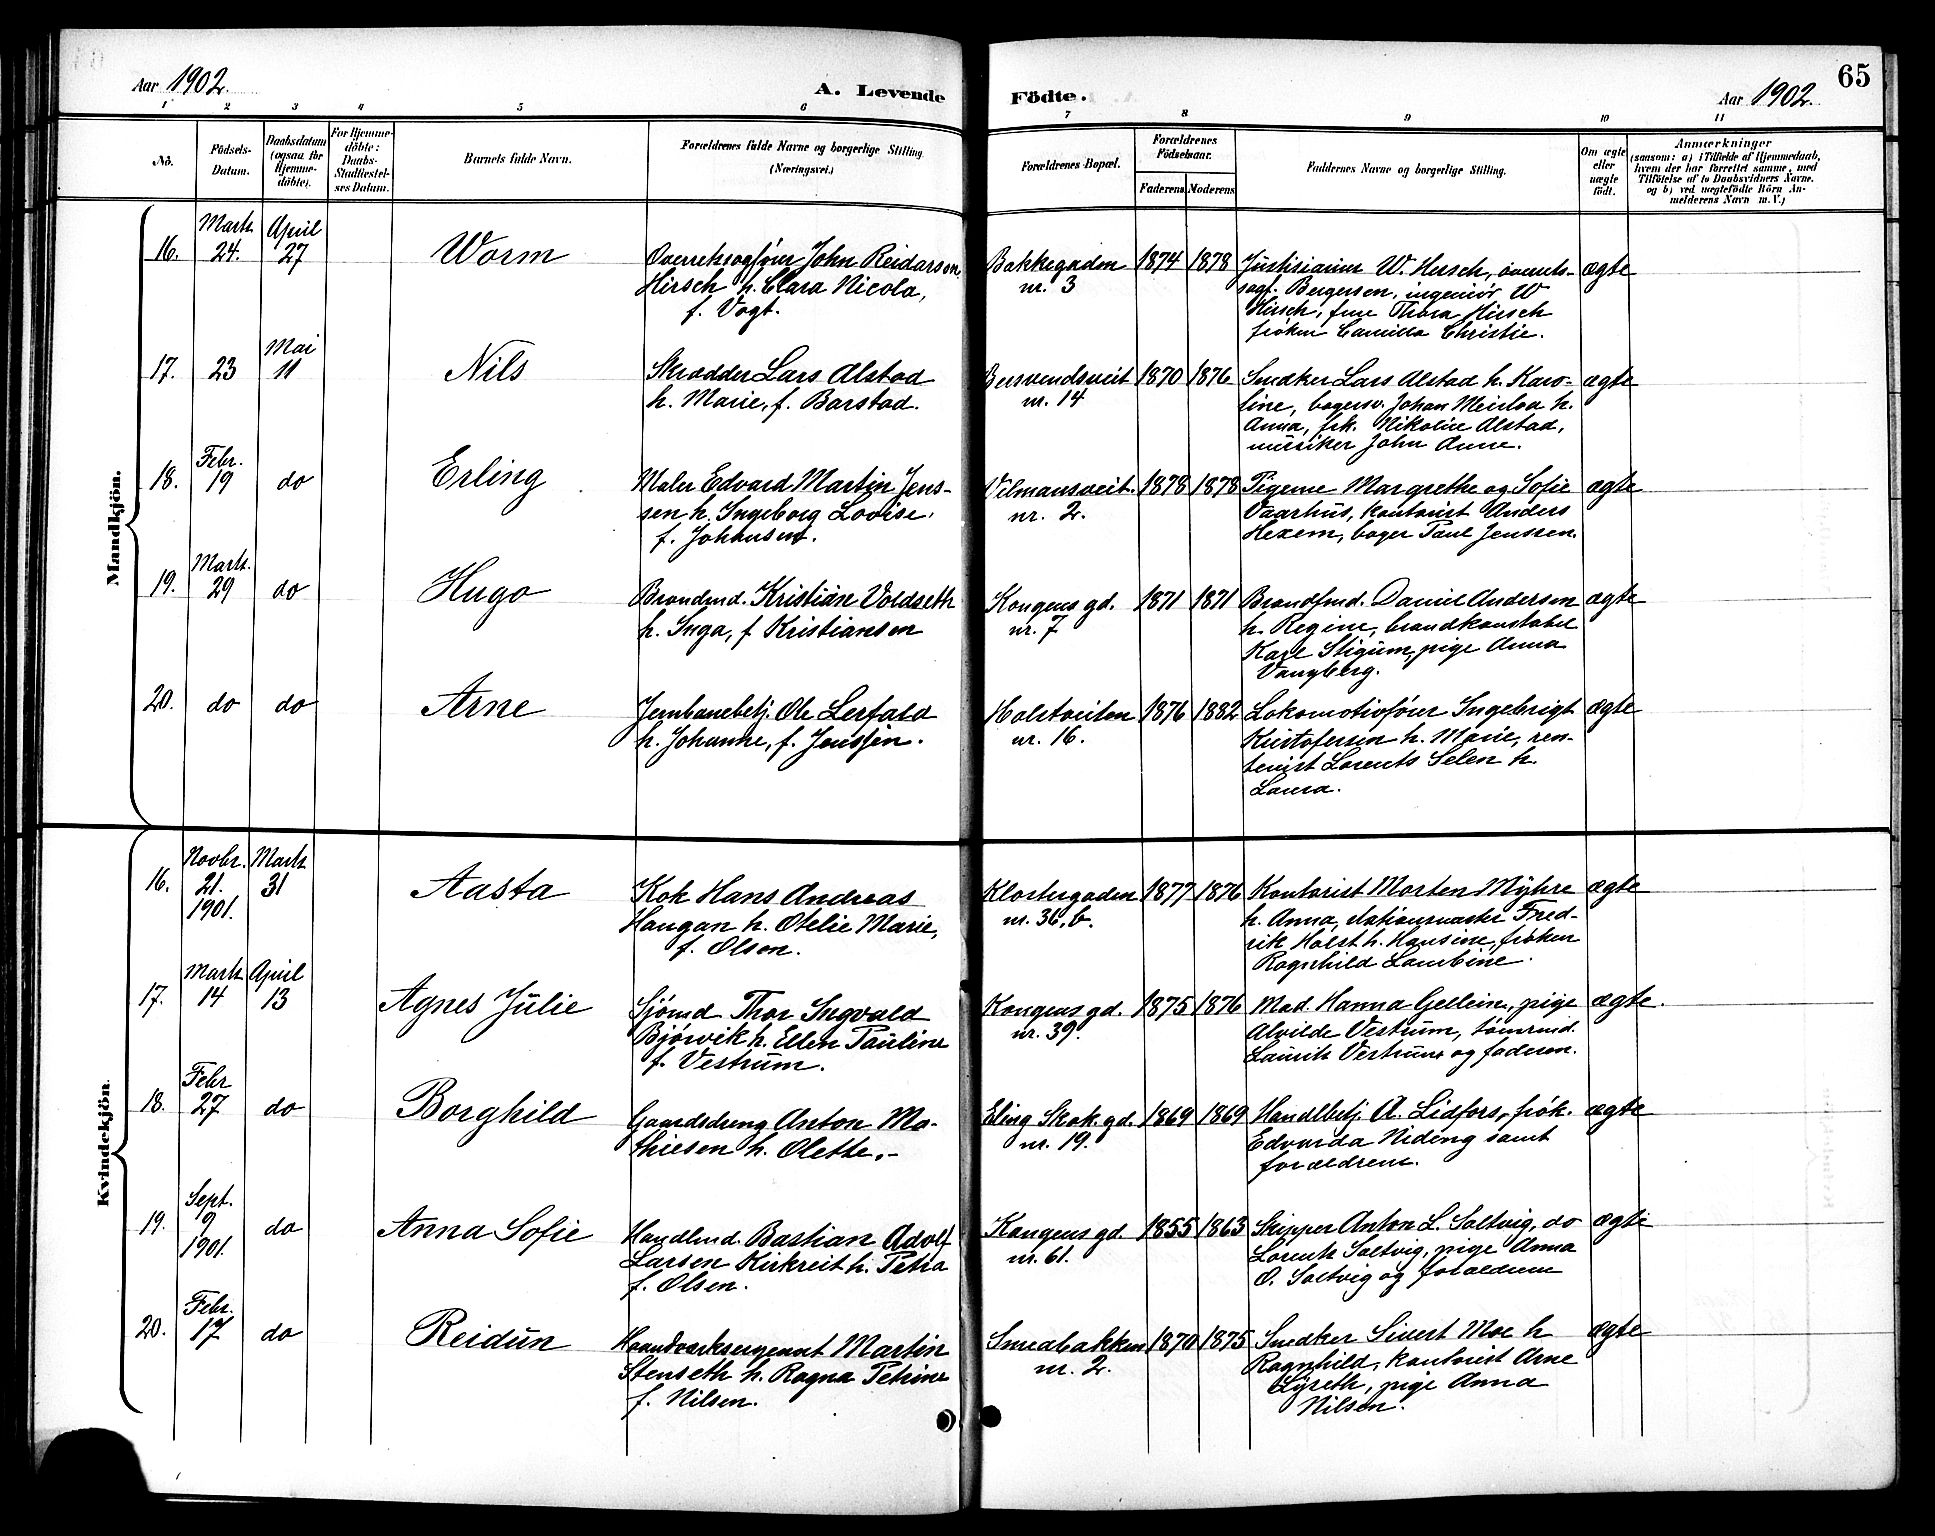 Aar 1902.
A. Levende
Födte.
Aar 1902.
65
1 2 3 4 5 6 7 8 9 10 11
No.
Födsels-
Datum.
Daabsdatum
(ogsaa for
Hjemme-
döbte).
For Hjemme-
döbte:
Daabs-
Stadfæstel-
ses Datum.
Barnets fulde Navn.
Forældrenes fulde Navne og borgerlige Stilling
(Næringsvei.)
Forældrenes Bopæl.
Forældrenes
Födselsaar.
Faderens Moderens
Faddernes Navne og borgerlige Stilling.
Om ægte
eller
uægte
født.
Anmærkninger
(saasom: a) i Tilfælde af Hjemmedaab,
hvem der har forrettet samme, med
Tilföielse af to Daabsvidners Navne.
og b) ved uægtefödte Börn An-
melderens Navn m. V.)
Mandkjön.
16.
Marts
24.
April
27
Worm
Overretssagfører John Reidarson
Hirsch h. Clara Nicola,
f. Vogt.
Bakkegaden
nr. 3
1874 1878
Justisiarius W. Hirsch, overrets-
sagf. Bergersen, ingeniør W
Hirsch, frue Thora Hirsch
frøken Camilla Christie.
ægte
17.
23
Mai
11
Nils
Skrædder Lars Alstad
h. Marie, f. Barstad.
Bersvendsveit
nr. 14
1870 1876
Snedker Lars Alstad h. Karo-
line, bagersv. Johan Meistad h.
Anna, frk. Nikoline Alstad,
musiker John Aune.
ægte
18.
Febr.
19
do
Erling
Maler Edvard Martin Jens-
sen h. Ingeborg Lovise.
f. Johnsen.
Vilmansveit.
nr. 2.
1878 1878
Pigerne Margrethe og Sofie
Vaarhus, kontorist Anders
Hexem, bager Paul Jenssen.
ægte
19.
Marts.
29
do
Hugo
Brandmd. Kristian Voldseth
h. Inga, f Kristiansen
Kongens gd.
nr. 7
1871 1871
Brandfmd. Daniel Andersen
h. Regine, brandkonstabel
Karl Stigum, pige Anna
Vangberg.
ægte
20.
do
do
Arne
Jernbanebetj. Ole Lerfald
h. Johanne, f. Jenssen.
Holstveiten
nr. 16.
1876 1882
Lokomotivfører Ingebrigt
Kristofersen h. Marie, ren-
tenist Lorents Selen h.
Laura.
ægte
Kvindekjön.
16.
Novbr.
21.
1901.
Marts
31
Aasta
Kok Hans Andreas
Haugan h. Otelie Marie,
f. Olsen.
Klostergaden
nr. 36, b.
1877 1876
Kontorist Morten Myhre
h. Anna, stationsmester Fred-
rik Holst h. Hansine, frøken
Ragnhild Lambine.
ægte
17.
Marts
14
April
13
Agnes Julie
Sjømd Thor Ingvald
Bjørvik h. Ellen Pauline
f. Vestrum.
Kongens gd.
nr. 39.
1875 1876
Mad. Hanna Gellein, pige
Alvilde Vestrum, tømrmd.
Laurits Vestrum og faderen.
ægte.
18.
Febr
27
do
Borghild
Gaardsdreng Anton Ma-
thiesen h. Olette.-
Erling Skak. gd.
nr. 19.
1869 1869
Handlbetj. A. Lidfors, frøk.
Edvarda Niding samt
forældrene.
ægte
19.
Sept.
9
1901.
do
Anna Sofie
Handlmd. Bastian Adolf
Larsen Kirkreit h. Petra
f. Olsen.
Kongens gd.
nr. 61.
1855 1863
Skipper Anton L. Saltvig, do
Lorents Saltvig, pige Anna
O. Saltvig og forældrene
ægte
20.
Febr.
17
do
Reidun
Haandværksergent Martin
Stenseth h. Ragna Petrine
f. Nilsen.
Smedbakken
nr. 2.
1870 1875
Snedker Sivert Moe h
Ragnhild, kontorist Arne
Lyseth, pige Anna
Nilsen.
ægte